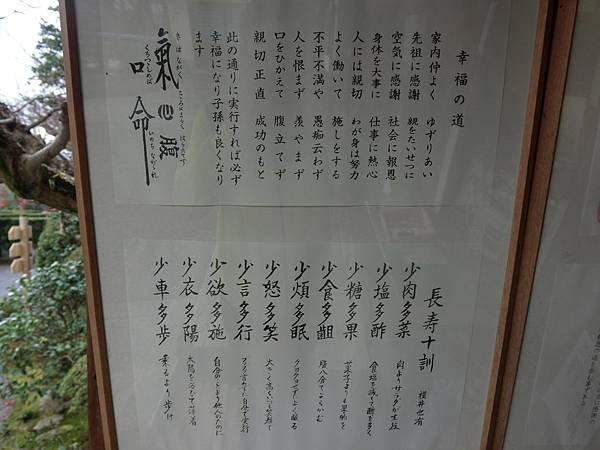 幸福の道
家内仲よく　ゆずりあい
先祖に感謝　親をたいせつに
空気に感謝　社会に報恩
身体を大事に　仕事に熱心
人には親切　わが身は努力
よく働いて　施しをする
不平不満や　愚痴云わず
人を恨まず　羨やまず
口をひかえて　腹立てず
親切正直　成功のもと
此の通りに実行すれば必ず
幸福になり子孫も良くなり
ます
氣心腹
きはながく　こころはまるく　はらたてず
口命
くちつつしめば　いのちながかれ
長寿十訓
横井也有
少肉多菜
肉よりサラダが主役
少塩多酢
食塩を減らし酢を多く
少糖多果
菓子よりも果物を
少食多齟
腹八分でよくかむ
少煩多眠
クヨクヨせずよく眠る
少怒多笑
大きく高くいつも笑顔で
少言多行
ブツブツ言わずに自分で実行
少欲多施
自分のことより他人のために
少衣多陽
太陽に当たって薄着
少車多歩
乗るより歩け